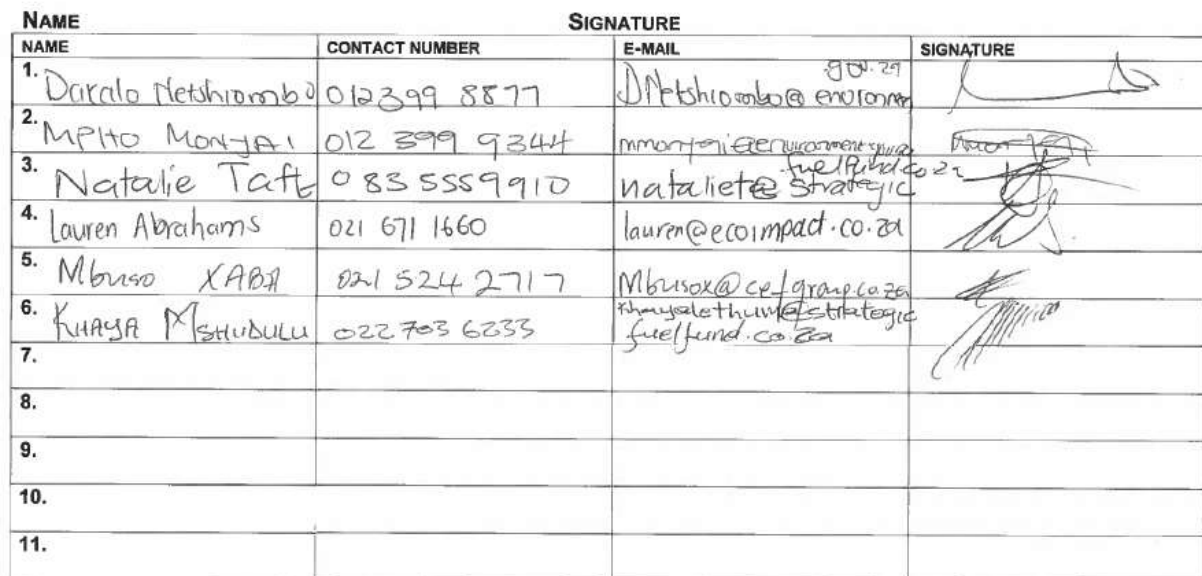 NAME SIGNATURE
NAME CONTACT NUMBER E-MAIL SIGNATURE
1. Netshiombo 012 399 8877 DNetshiombo@environmen
.gov.za
2. MPHO MONYAI 012 399 9344
3. Natalie Taft 083 5559910 nataliet@strategic
fuelfund.co.za
4. Lauren Abrahams 021 671 1660 lauren@ecoimpact.co.za
5. Mbuso XABA 021 524 2717 Mbusox@cefgroup.co.za
6. KHAYA MSHUBULU 022 703 6233 khayalethum@strategic
fuelfund.co.za
7.
8.
9.
10.
11.